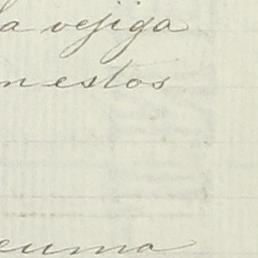 a vejiga
n estos
euma